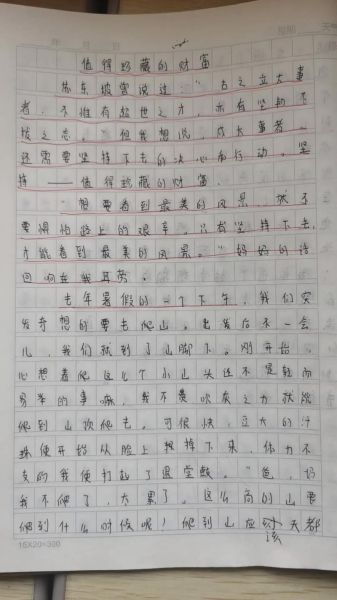 值得珍藏的财富
苏东坡曾说过："古之立大事
者,不惟有超世之才,亦有坚韧不
拔之志。"但我想说,成大事者,
还需要坚持下去的决心和行动。坚
持——值得珍藏的财富。
"想要看到最美的风景,就不
要惧怕路上的艰辛,只有坚持下去,
才能看到最美的风景。"妈妈的话
回响在我耳旁。
去年暑假的一个下午,我们突
发奇想的要去爬山。出发后不一会
儿,我们就到了山脚下。刚开始,
心想着爬这么个小山头还不是轻而
易举的事嘛,我不费吹灰之力就能
爬到山顶爬去。可很快,豆大的汗
珠便开始从脸上掉下来,体力不
支的我便打起了退堂鼓。"爸,妈
我不爬了,太累了。这么高的山要
爬到什么时候呢!爬到山应该天都
15X20=300